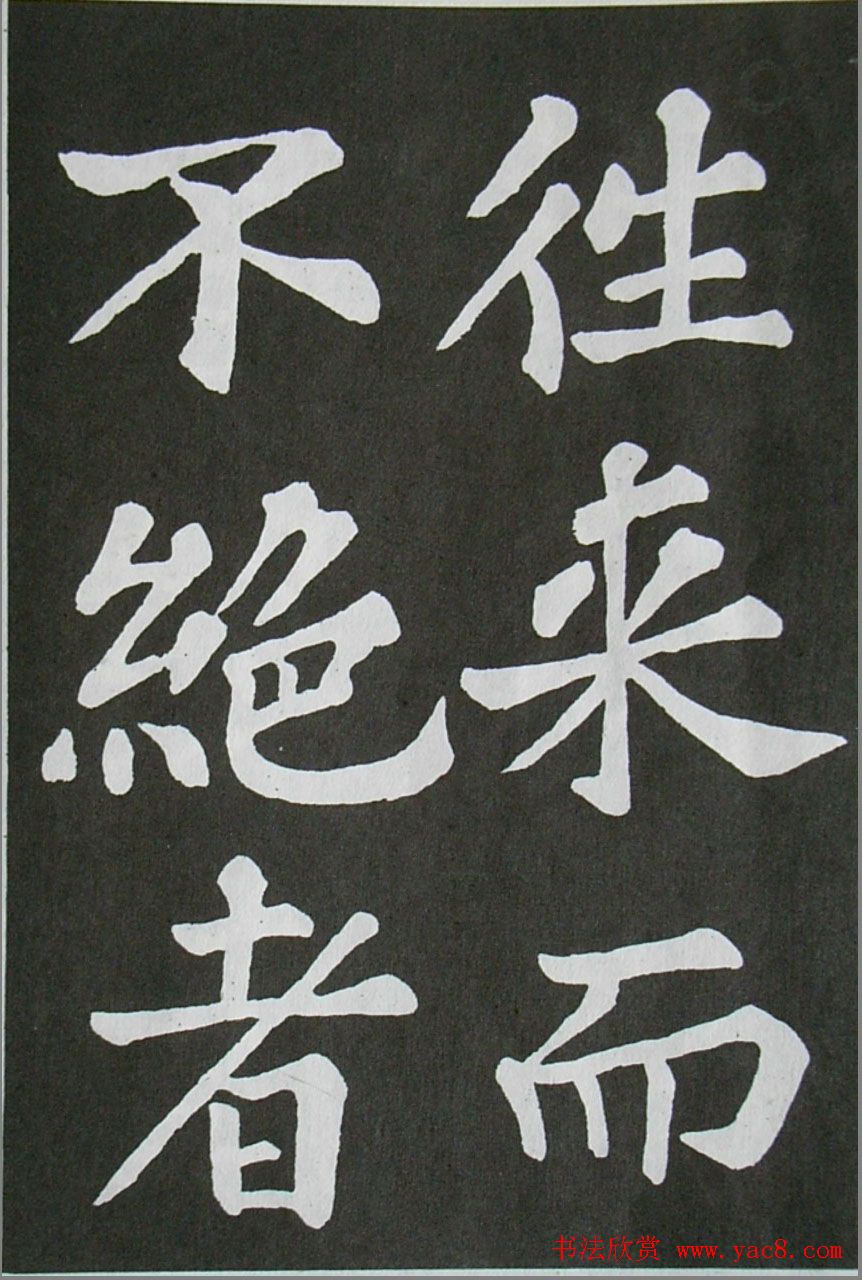 往来而
不絶者
书法欣赏 www.yac8.com